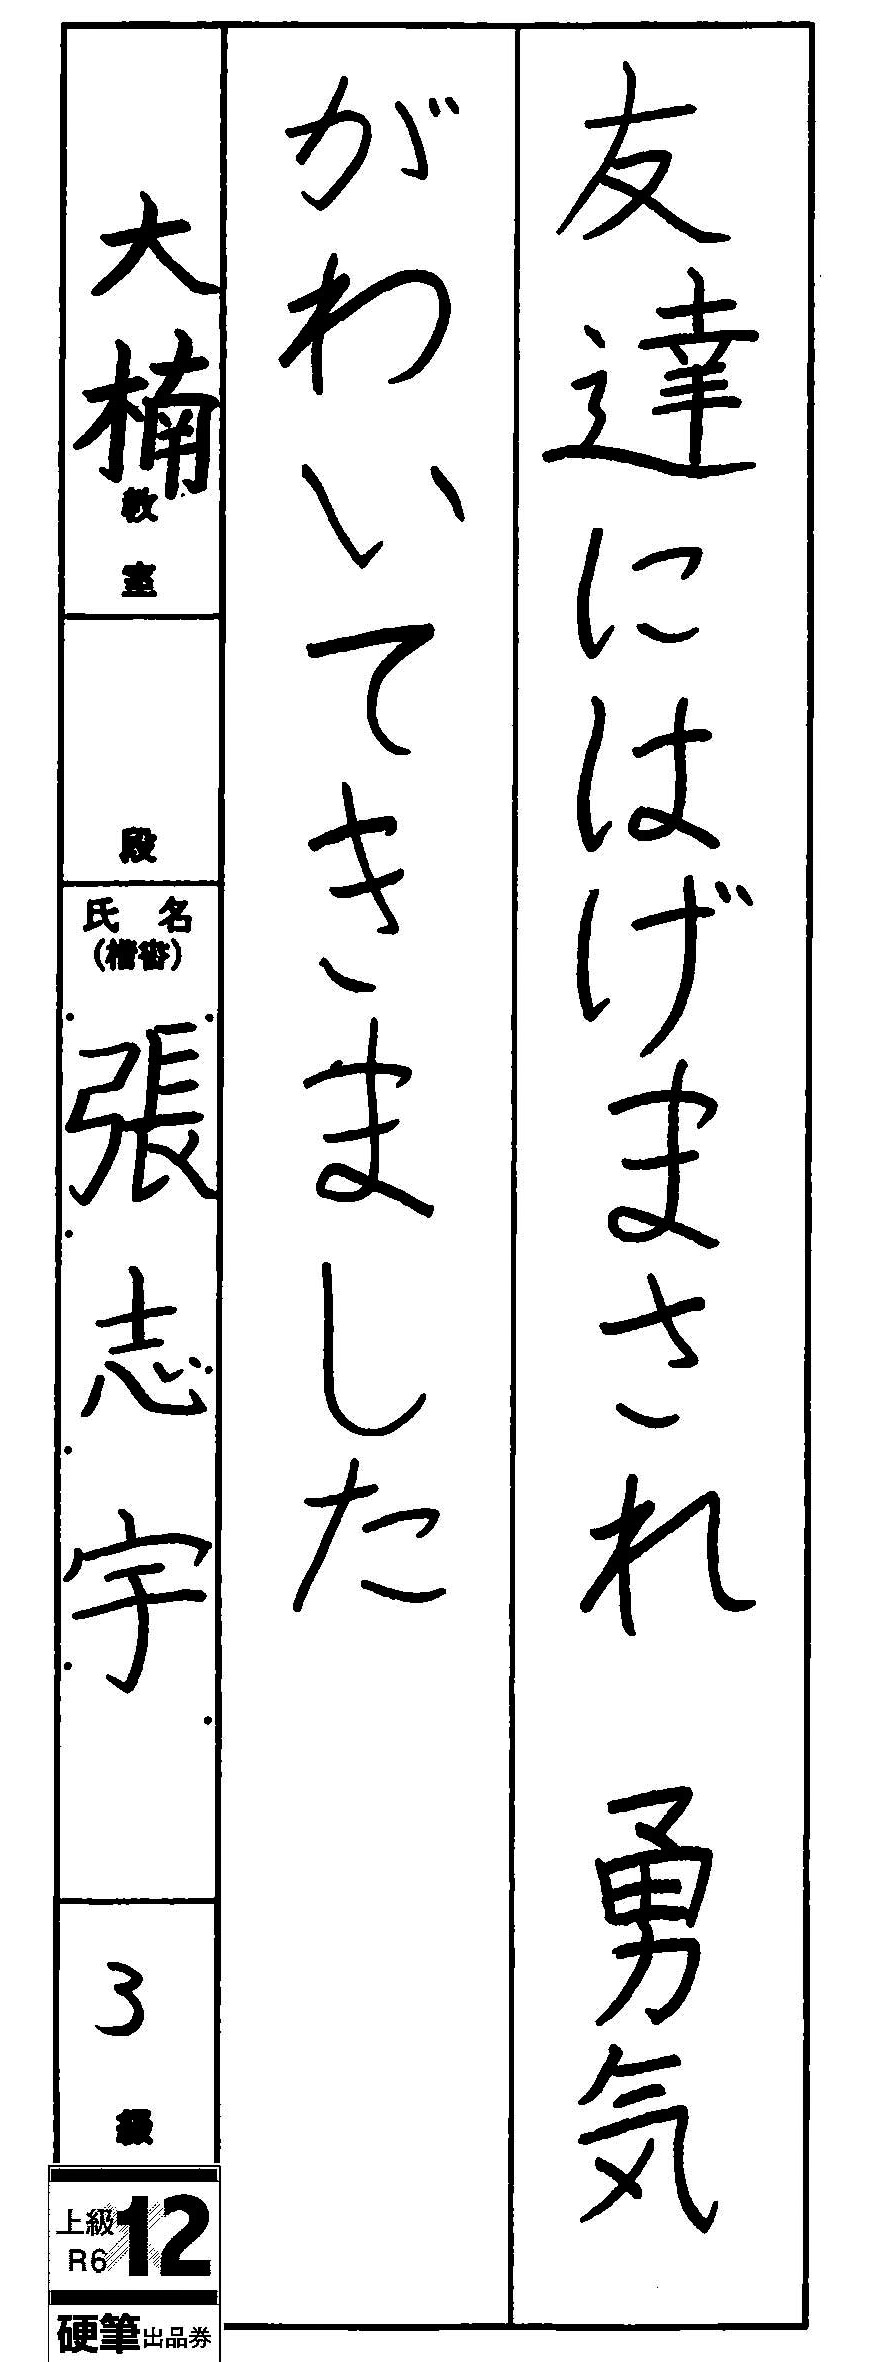 友達にはげまされ 勇気
がわいてきました
大楠教室
段
氏名
(楷書)
張志宇
3級
上級
R6
12
硬筆出品券